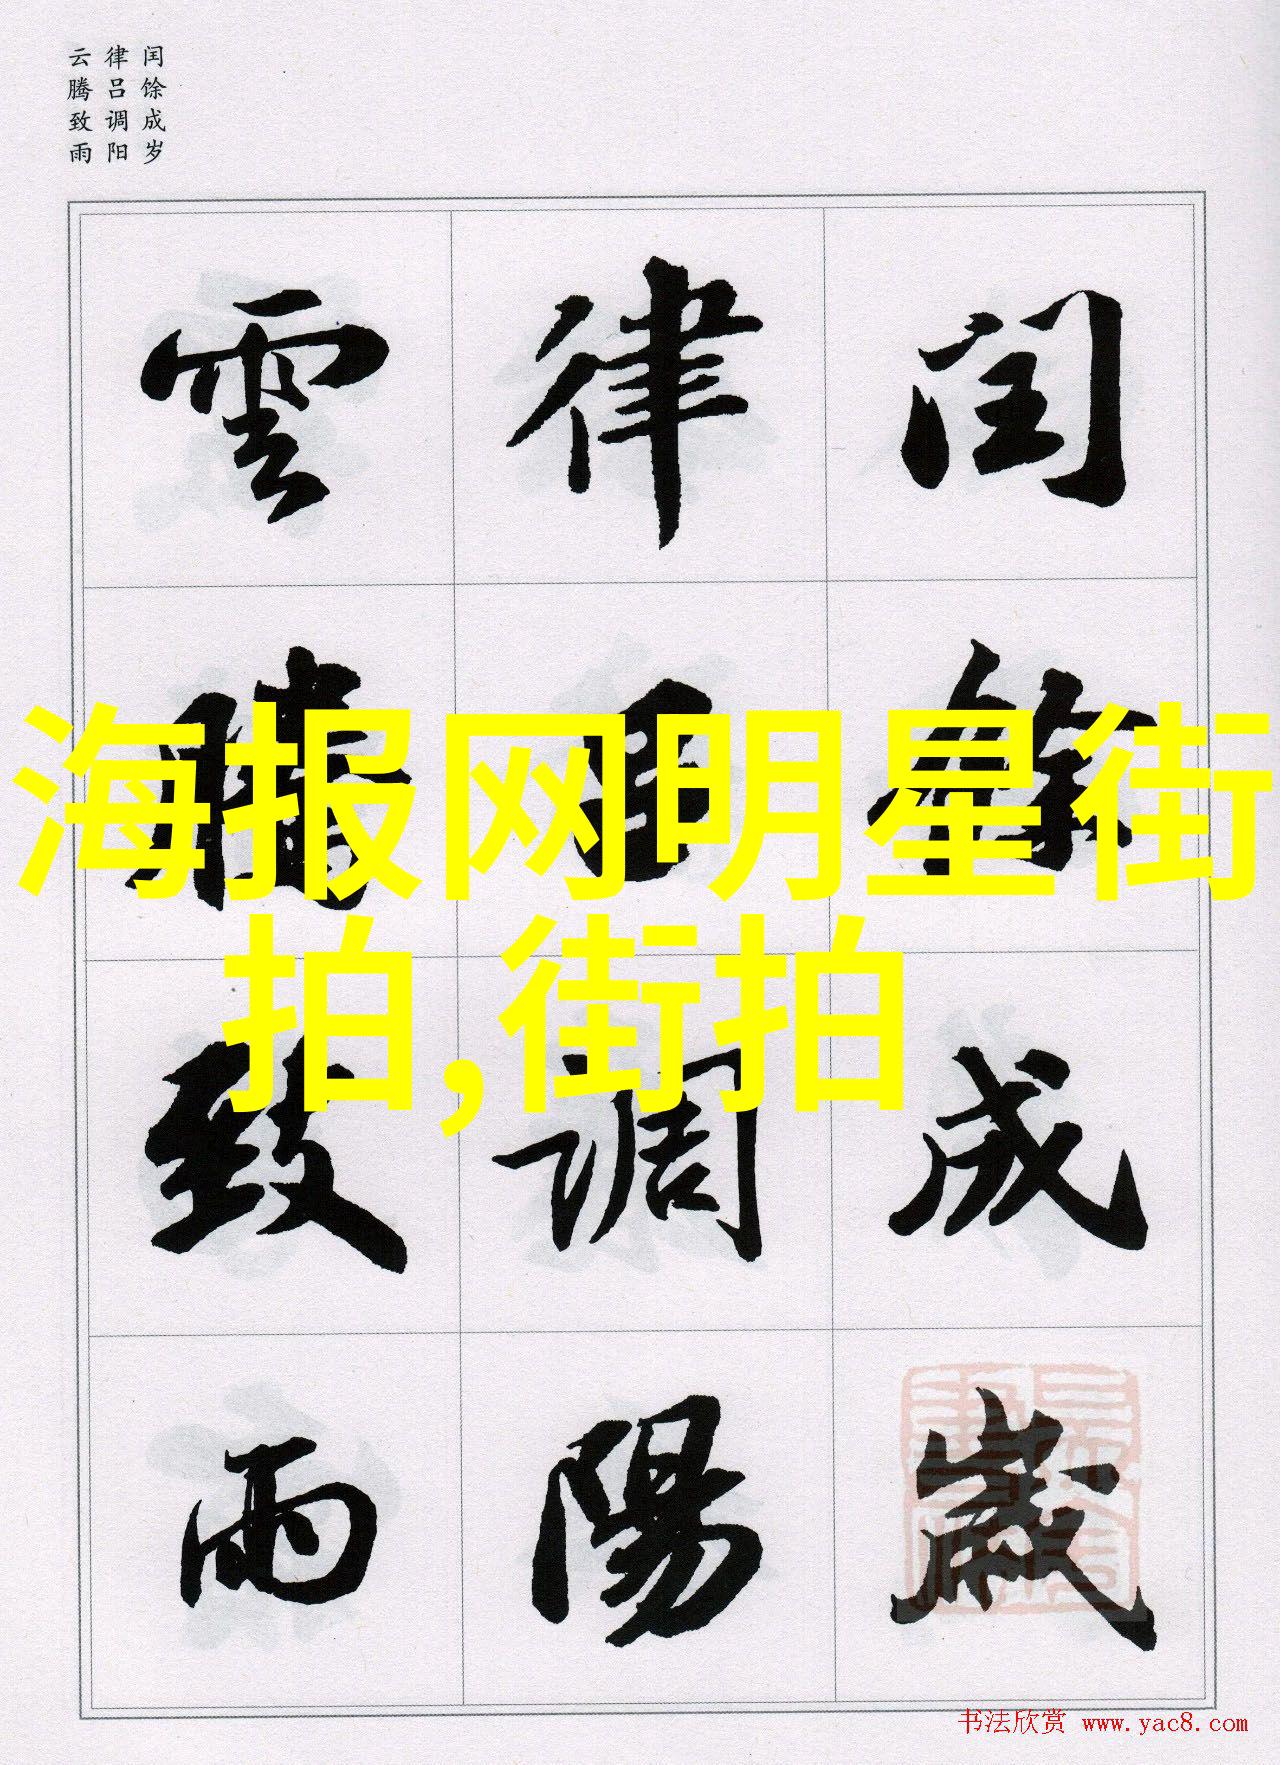 闰馀成岁
律吕调阳
云腾致雨
闰馀成歲
律吕调陽
雲腾致雨
海报网明星街
拍,街拍
书法欣赏 www.yac8.com